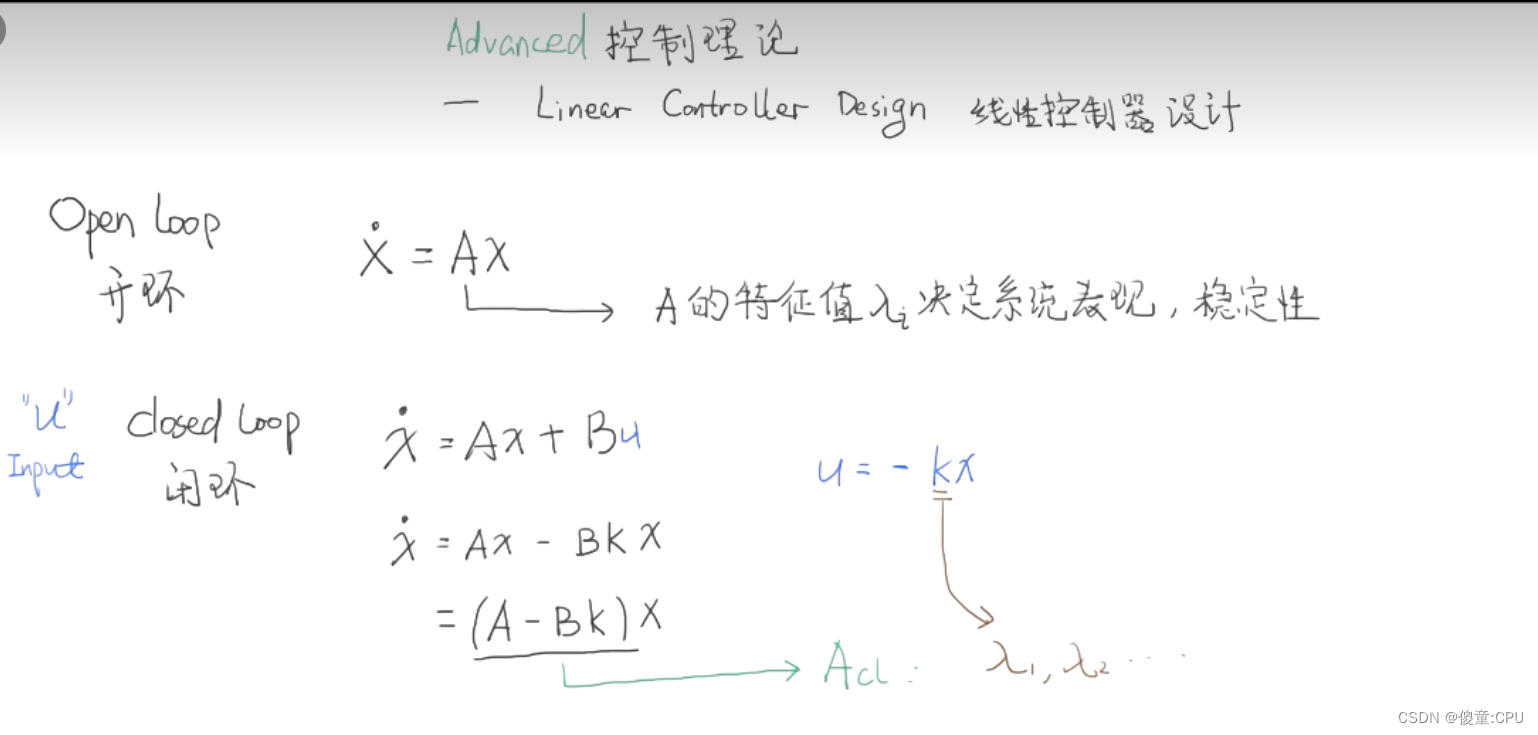 Advanced 控制理论
— Linear Controller Design 线性控制器设计
Open loop
开环
ẋ = Ax
A的特征值λi决定系统表现，稳定性
"u"
Input
closed loop
闭环
ẋ = Ax + Bu
u = - kx
ẋ = Ax - BKx
= (A - BK)x
Acl : λ1, λ2 ...
CSDN @傻童:CPU